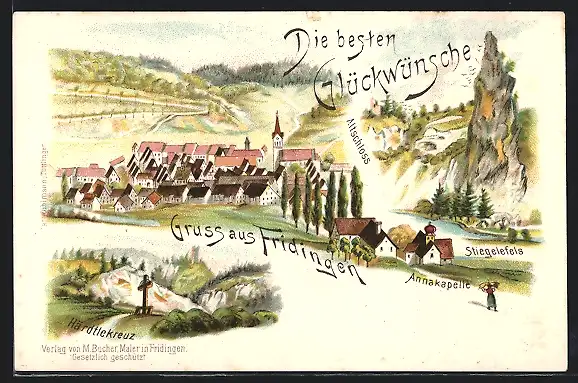 Die besten
Glückwünsche
Altschloss
Gruss aus Fridingen
Stiegelefels
Annakapelle
Härdtlekreuz
Verlag von M. Bucher, Maler in Fridingen.
Gesetzlich geschützt